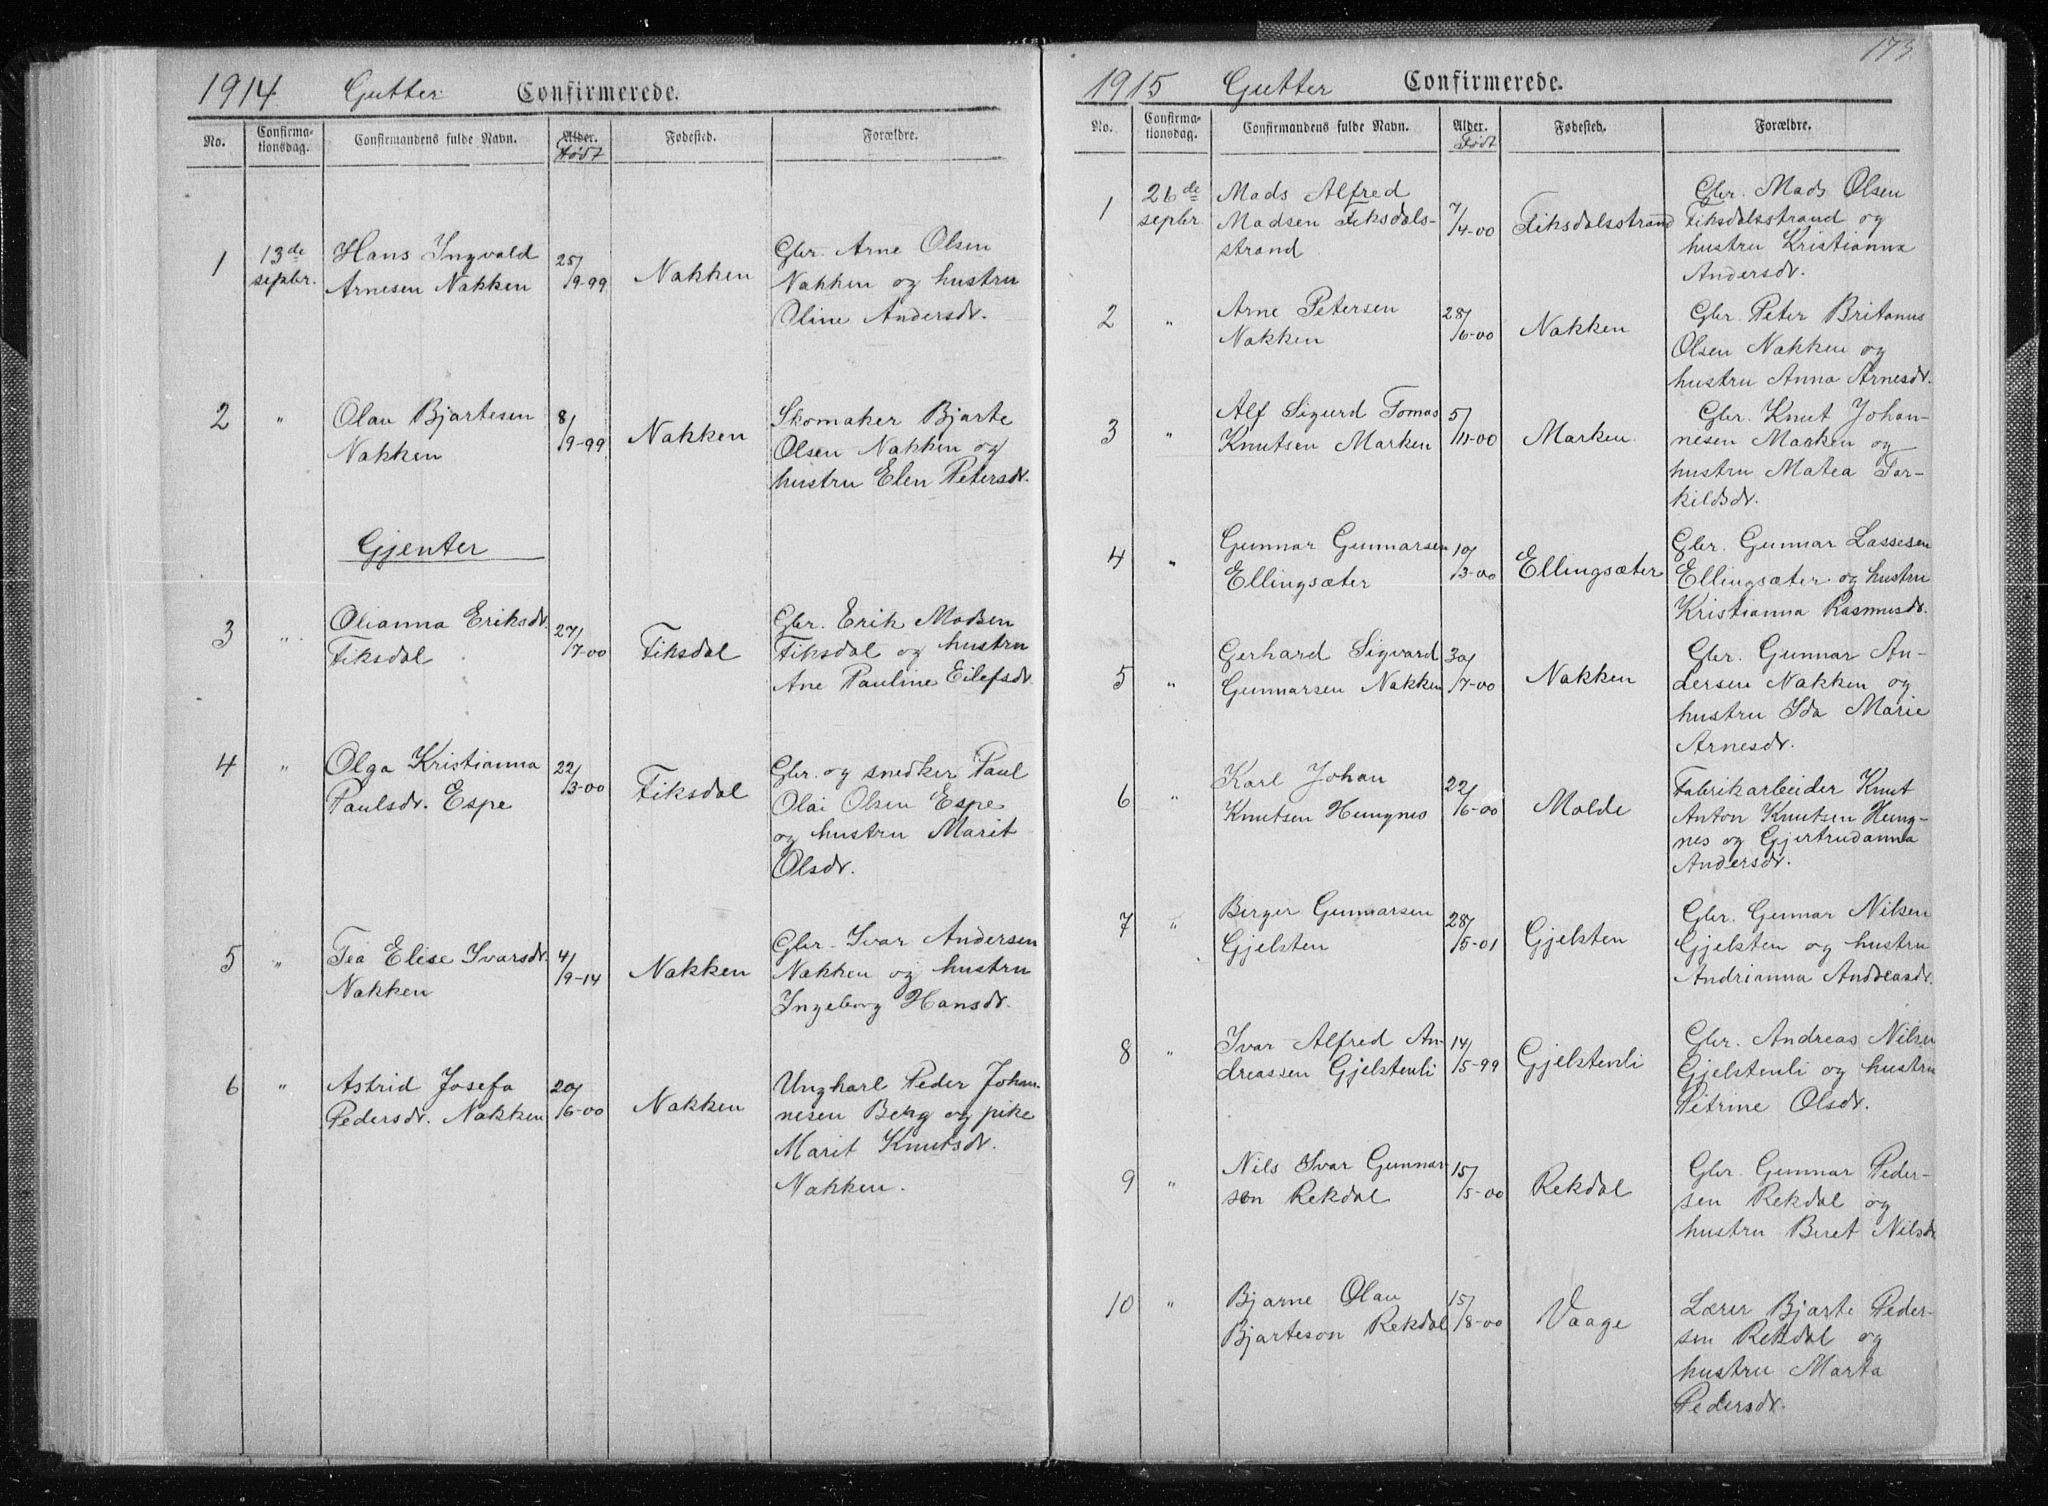 1914 Gutter Confirmerede.
No. Confirma-tionsdag. Confirmandens fulde Navn. Alder. Født Fødested. Forældre.
1 13de septbr. Hans Ingvald Arnesen Nakken 25/9-99 Nakken Gbr. Arne Olsen
Nakken og hustru
Oline Andersdr.
2 " Olav Bjartesen Nakken 8/9-99 Nakken Skomaker Bjarte
Olsen Nakken og
hustru Elen Petersdr.
Gjenter
3 " Olianna Eriksdr. Fiksdal 27/7-00 Fiksdal Gbr. Erik Madsen
Fiksdal og hustru
Ane Pauline Eilefsdr.
4 " Olga Kristianna Paulsdr. Espe 22/3-00 Fiksdal Gbr. og snedker Paul
Olai Olsen Espe
og hustru Marit
Olsdr.
5 " Tea Elise Ivarsdr. Nakken 4/9-14 Nakken Gbr. Ivar Andersen
Nakken og hustru
Ingeborg Hansdr.
6 " Astrid Josefa Pedersdr. Nakken 20/6-00 Nakken Ungkarl Peder Johan-
nesen Berg og pike
Marit Knutsdr.
Nakken.
173
1915 Gutter Confirmerede.
No. Confirma-tionsdag. Confirmandens fulde Navn. Alder. Født Fødested. Forældre.
1 26de septbr Mads Alfred Madsen Fiksdals-strand 7/4-00 Fiksdalsstrand Gbr. Mads Olsen
Fiksdalsstrand og
hustru Kristianna
Andersdr.
2 " Arne Petersen Nakken 28/6-00 Nakken Gbr. Peter Britanus
Olsen Nakken og
hustru Anna Arnesdr.
3 " Alf Sigurd Tomas Knutsen Marken 5/11-00 Marken Gbr. Knut Johan-
nesen Marken og
hustru Matea Tor-
kildsdr.
4 " Gunnar Gunnarsen Ellingsæter 10/3-00 Ellingsæter Gbr. Gunnar Lassesen
Ellingsæter og hustru
Kristianna Rasmusdr.
5 " Gerhard Sigvard Gunnarsen Nakken 30/7-00 Nakken Gbr. Gunnar An-
dersen Nakken og
hustru Ida Marie
Arnesdr.
6 " Karl Johan Knutsen Hungnes 22/6-00 Molde Fabrikarbeider Knut
Anton Knutsen Hung-
nes og Gjertrudanna
Andersdr.
7 " Birger Gunnarsen Gjelsten 28/5-01 Gjelsten Gbr. Gunnar Nilsen
Gjelsten og hustru
Andrianna Andreasdr.
8 " Ivar Alfred An-dreassen Gjelstenli 14/5-99 Gjelstenli Gbr. Andreas Nilsen
Gjelstenli og hustru
Petrine Olsdr.
9 " Nils Ivar Gunnar-sen Rekdal 15/5-00 Rekdal Gbr. Gunnar Peder-
sen Rekdal og
hustru Beret Nilsdr
10 " Bjarne Olav Bjarteson Rekdal 15/8-00 Vaage Lærer Bjarte Peder-
sen Rekdal og
hustru Marta
Pedersdr.